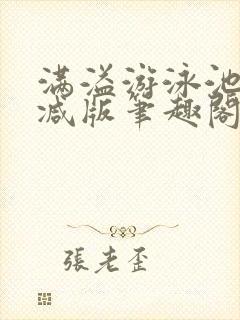 满溢游泳池
减版筆趣閣
張老歪